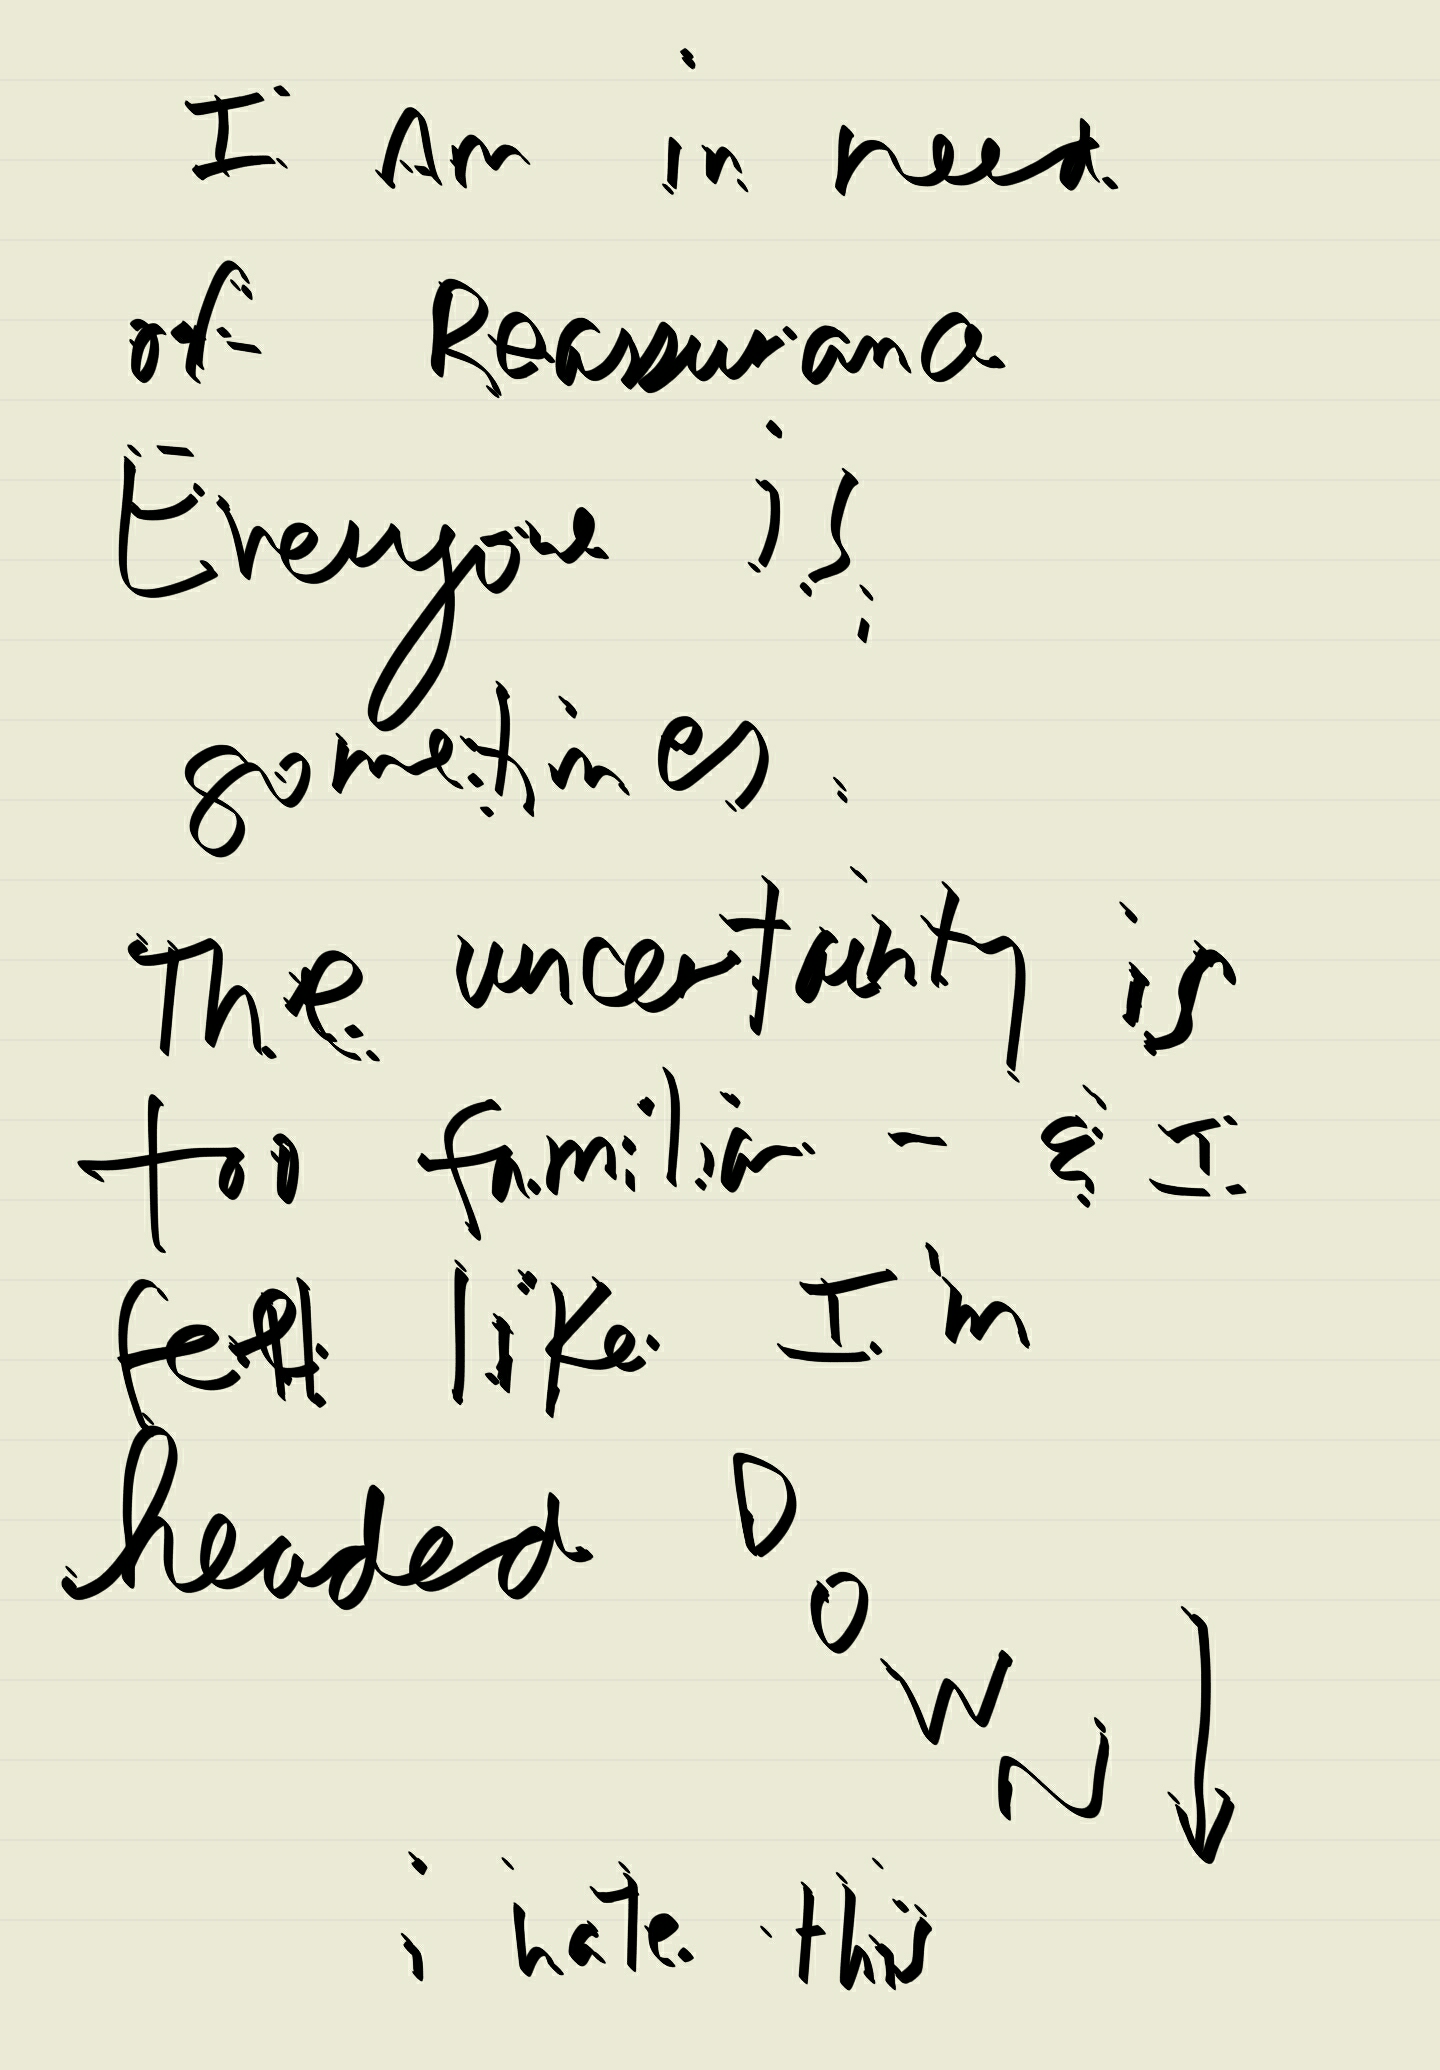 I Am in need
of Reassurance
Everyone is,
sometimes.
The uncertainty is
too familiar - & I
feel like I'm
headed DOWN
i hate this